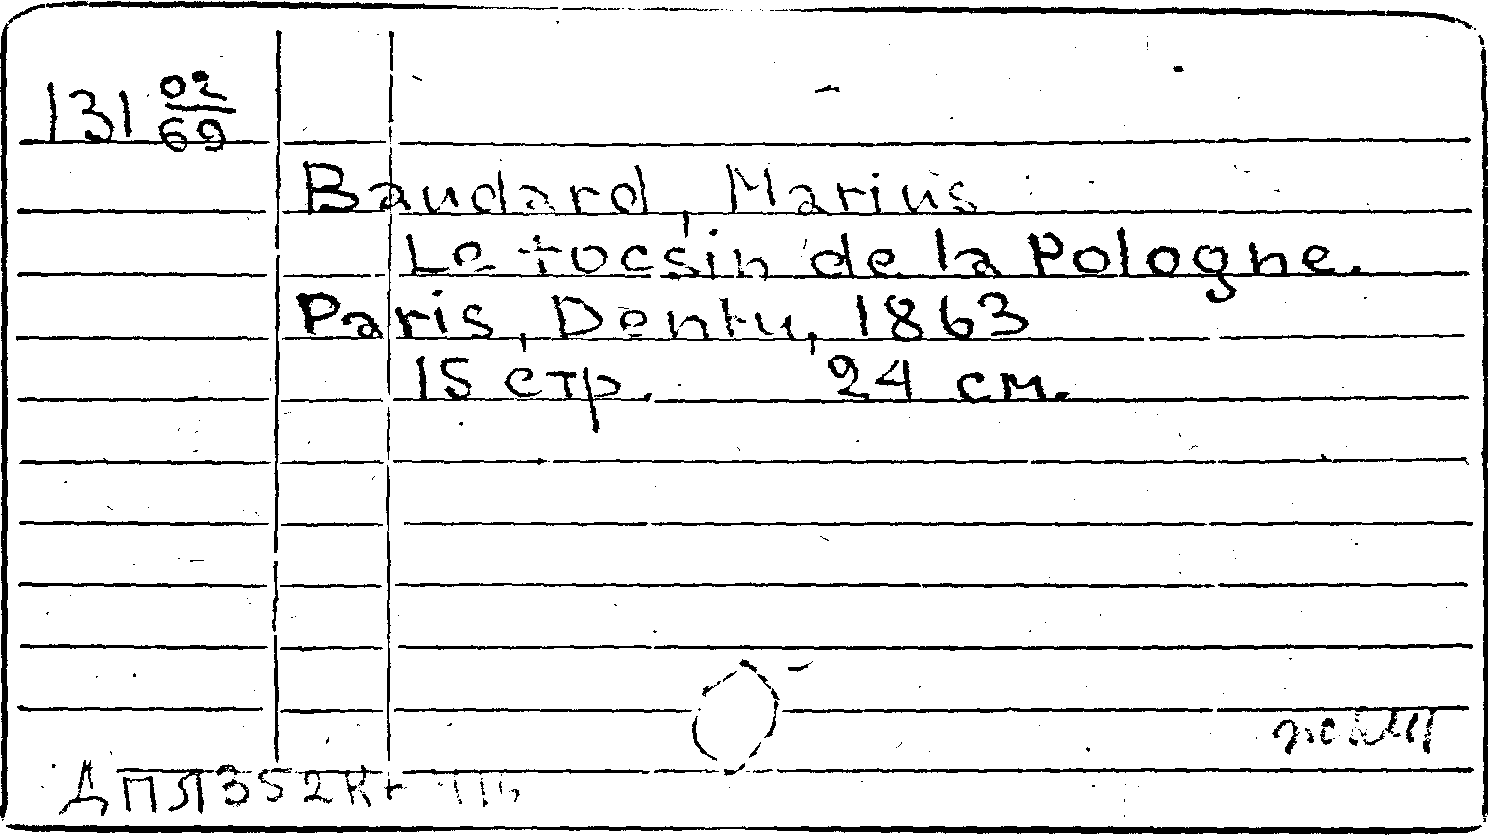 131 02/69
Baudard, Marius
Le tocsin de la Pologne.
Paris, Dentu, 1863
15 стр. 24 см.